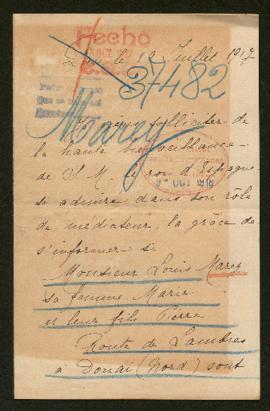 Fecho
le 19 Juillet 1917
37482
Marez
solliciter de
la haute bienveillance
de S. M. le roi d'Espagne
dans son rôle
de médiateur, la grâce de
s'informer si
Monsieur Louis Marez
sa femme Marie
et leur fils Pierre
Route de Lambres
à Douai (Nord) sont